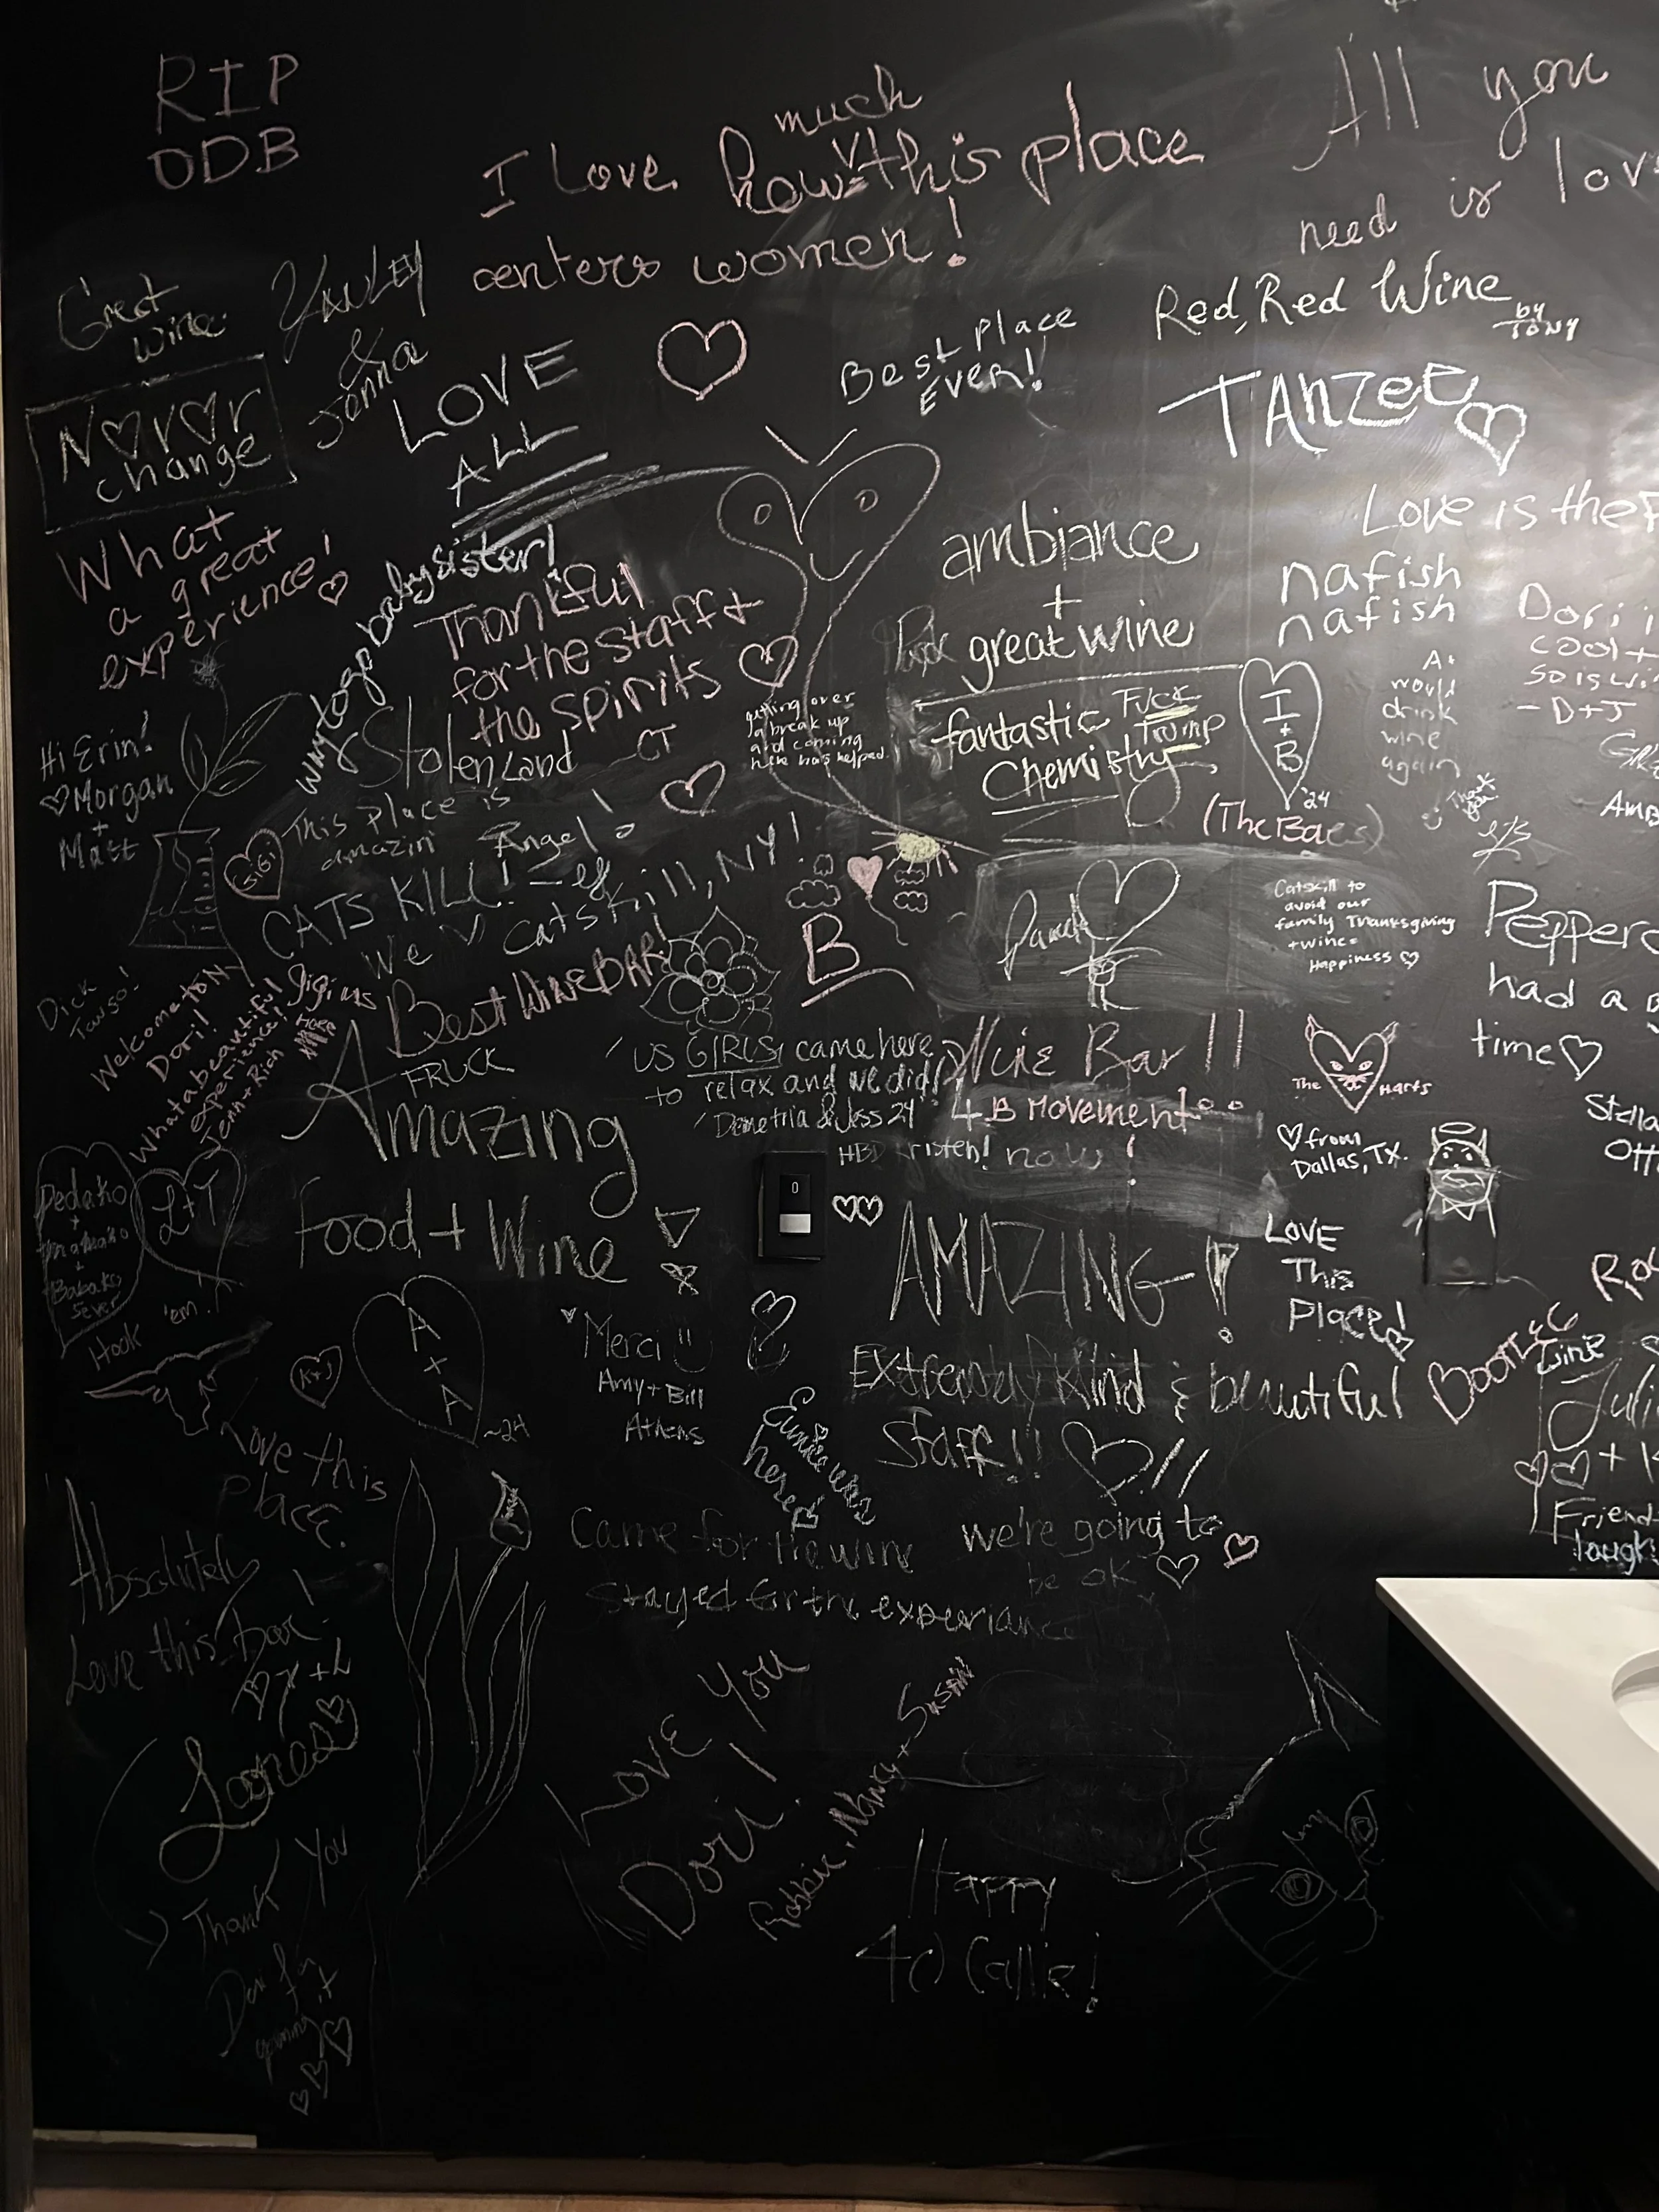 RIP
ODB
I love how much this place
centers women!
All you
need is lov
Great
wine
YANLEY
&
Jonna
LOVE
ALL
Best Place
Ever!
Red, Red Wine
by
TONY
TANZEE
N♡v♡r
change
What
a great
experience!
Thankful
for the staff +
the spirits
my togo baby sister!
ambiance
+
great wine
fantastic
Chemistry
Fuck
Trump
Love is the
nafish
nafish
Dori i
cool +
so is wi
- D+J
A+
would
drink
wine
again
Thank
you
I
+
B
'24
(The Baes)
getting over
a break up
and coming
here has helped.
Hi Erin!
♡Morgan
+
Matt
Stolen Land - CT
This Place is
amazin
Angel!
GiGi
CATS KILL!
We ♡ Catskill, NY!
B
Catskill to
avoid our
family Thanksgiving
+ wine =
Happiness ♡
Pepper
had a
time♡
Best WINE BAR!
Welcome TONY
Dori!
What a beautiful
experience!
Jenn + Rich
Gigi was
HERE
FRUCK
Amazing
food + Wine
US GIRLS came here
to relax and we did!
Demetria & Jess 24
Wine Bar !!
4B MOVEMENT
now!
The Harts
HBD Kristen!
♡ from
Dallas, TX.
Stella
Ott
Pedako
+
+
Babako
5ever
L+T
Hook 'em
LOVE
This
Place!
AMAZING!
K+J
A
+
A
~24
Merci!!
Amy + Bill
Athens
Extremely Kind & beautiful
Staff!! ♡!!
BOOTS
wine
Juli
♡♡ +
Friend
laugh
Eunice was
here
Love this
place.
Absolutely
Love this bar!
Came for the wine
Stayed for the experiance
we're going to
be ok ♡
Love You
Dori!
Robbie, Nancy + Susan
Thank You
Dori for
opening it
Happy
40 Callie!